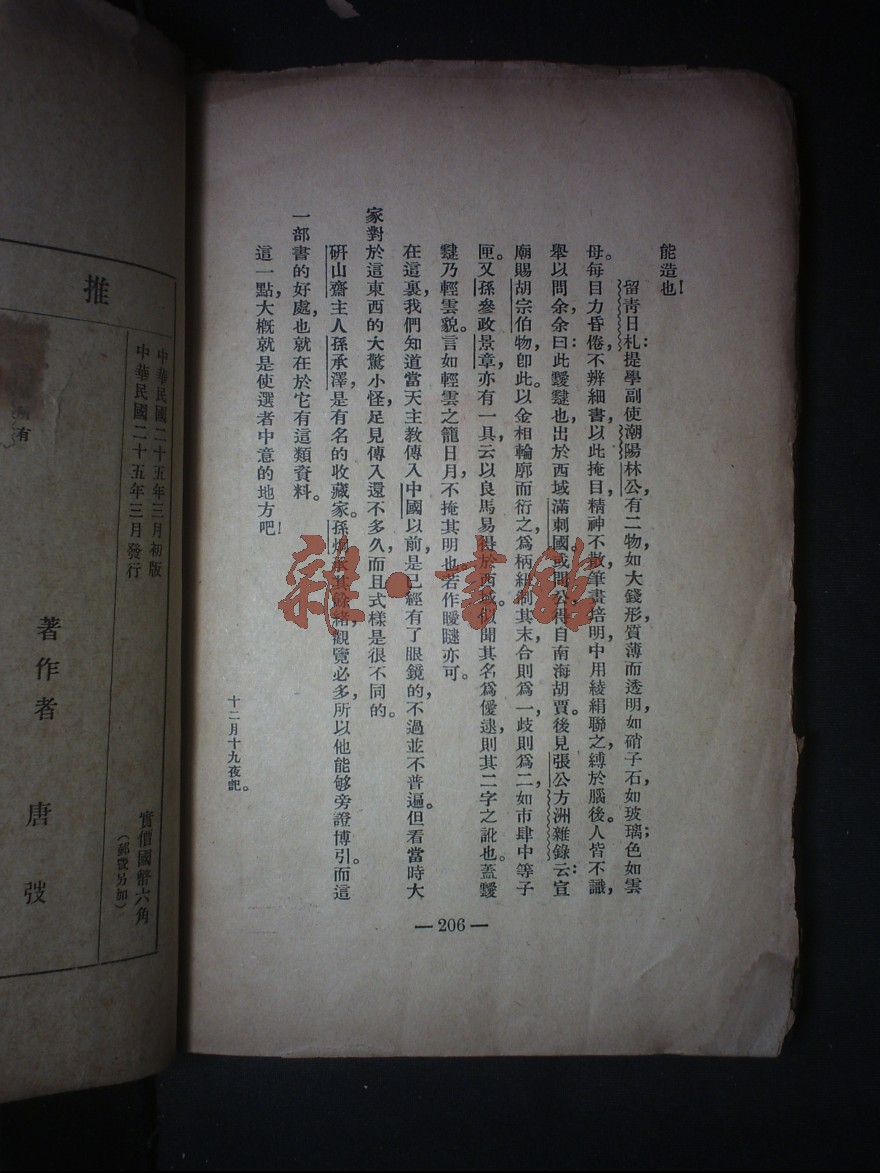 能造也！
留青日札：提學副使潮陽林公，有二物如大錢形，質薄而透明，如硝子石，如玻璃；色如雲
母。每目力昏倦，不辨細書，以此掩目，精神不散，筆畫培明。中用綾絹聯之，縛於腦後。人皆不識，
舉以問余，余曰：此靉靆也，出於西域滿刺國，或問公得自南海胡賈。後見張公方洲雜錄云：宣
廟賜胡宗伯物，卽此。以金相輪廓而衍之爲柄，紐制其末，合則爲一，歧則爲二，如市肆中等子
匣。又孫參政景章，亦有一具，云以良馬易得於西域。似聞其名爲僾逮，則其二字之訛也。蓋靉
靆乃輕雲貌。言如輕雲之籠日月，不掩其明也。若作靉靆亦可。
在這裏，我們知道當天主教傳入中國以前，是已經有了眼鏡的，不過並不普遍。但看當時大
家對於這東西的大驚小怪，足見傳入還不多久，而且式樣是很不同的。
硏山齋主人孫承澤，是有名的收藏家。孫炯承其餘緒，觀覽必多，所以他能够旁證博引。而這
一部書的好處，也就在於它有這類資料。
這一點大槪就是使選者中意的地方吧！
十二月十九夜記。
— 206 —
雜·書館
推
中華民國二十五年三月初版
中華民國二十五年三月發行
著作者 唐弢
實價國幣六角
（郵費另加）
有